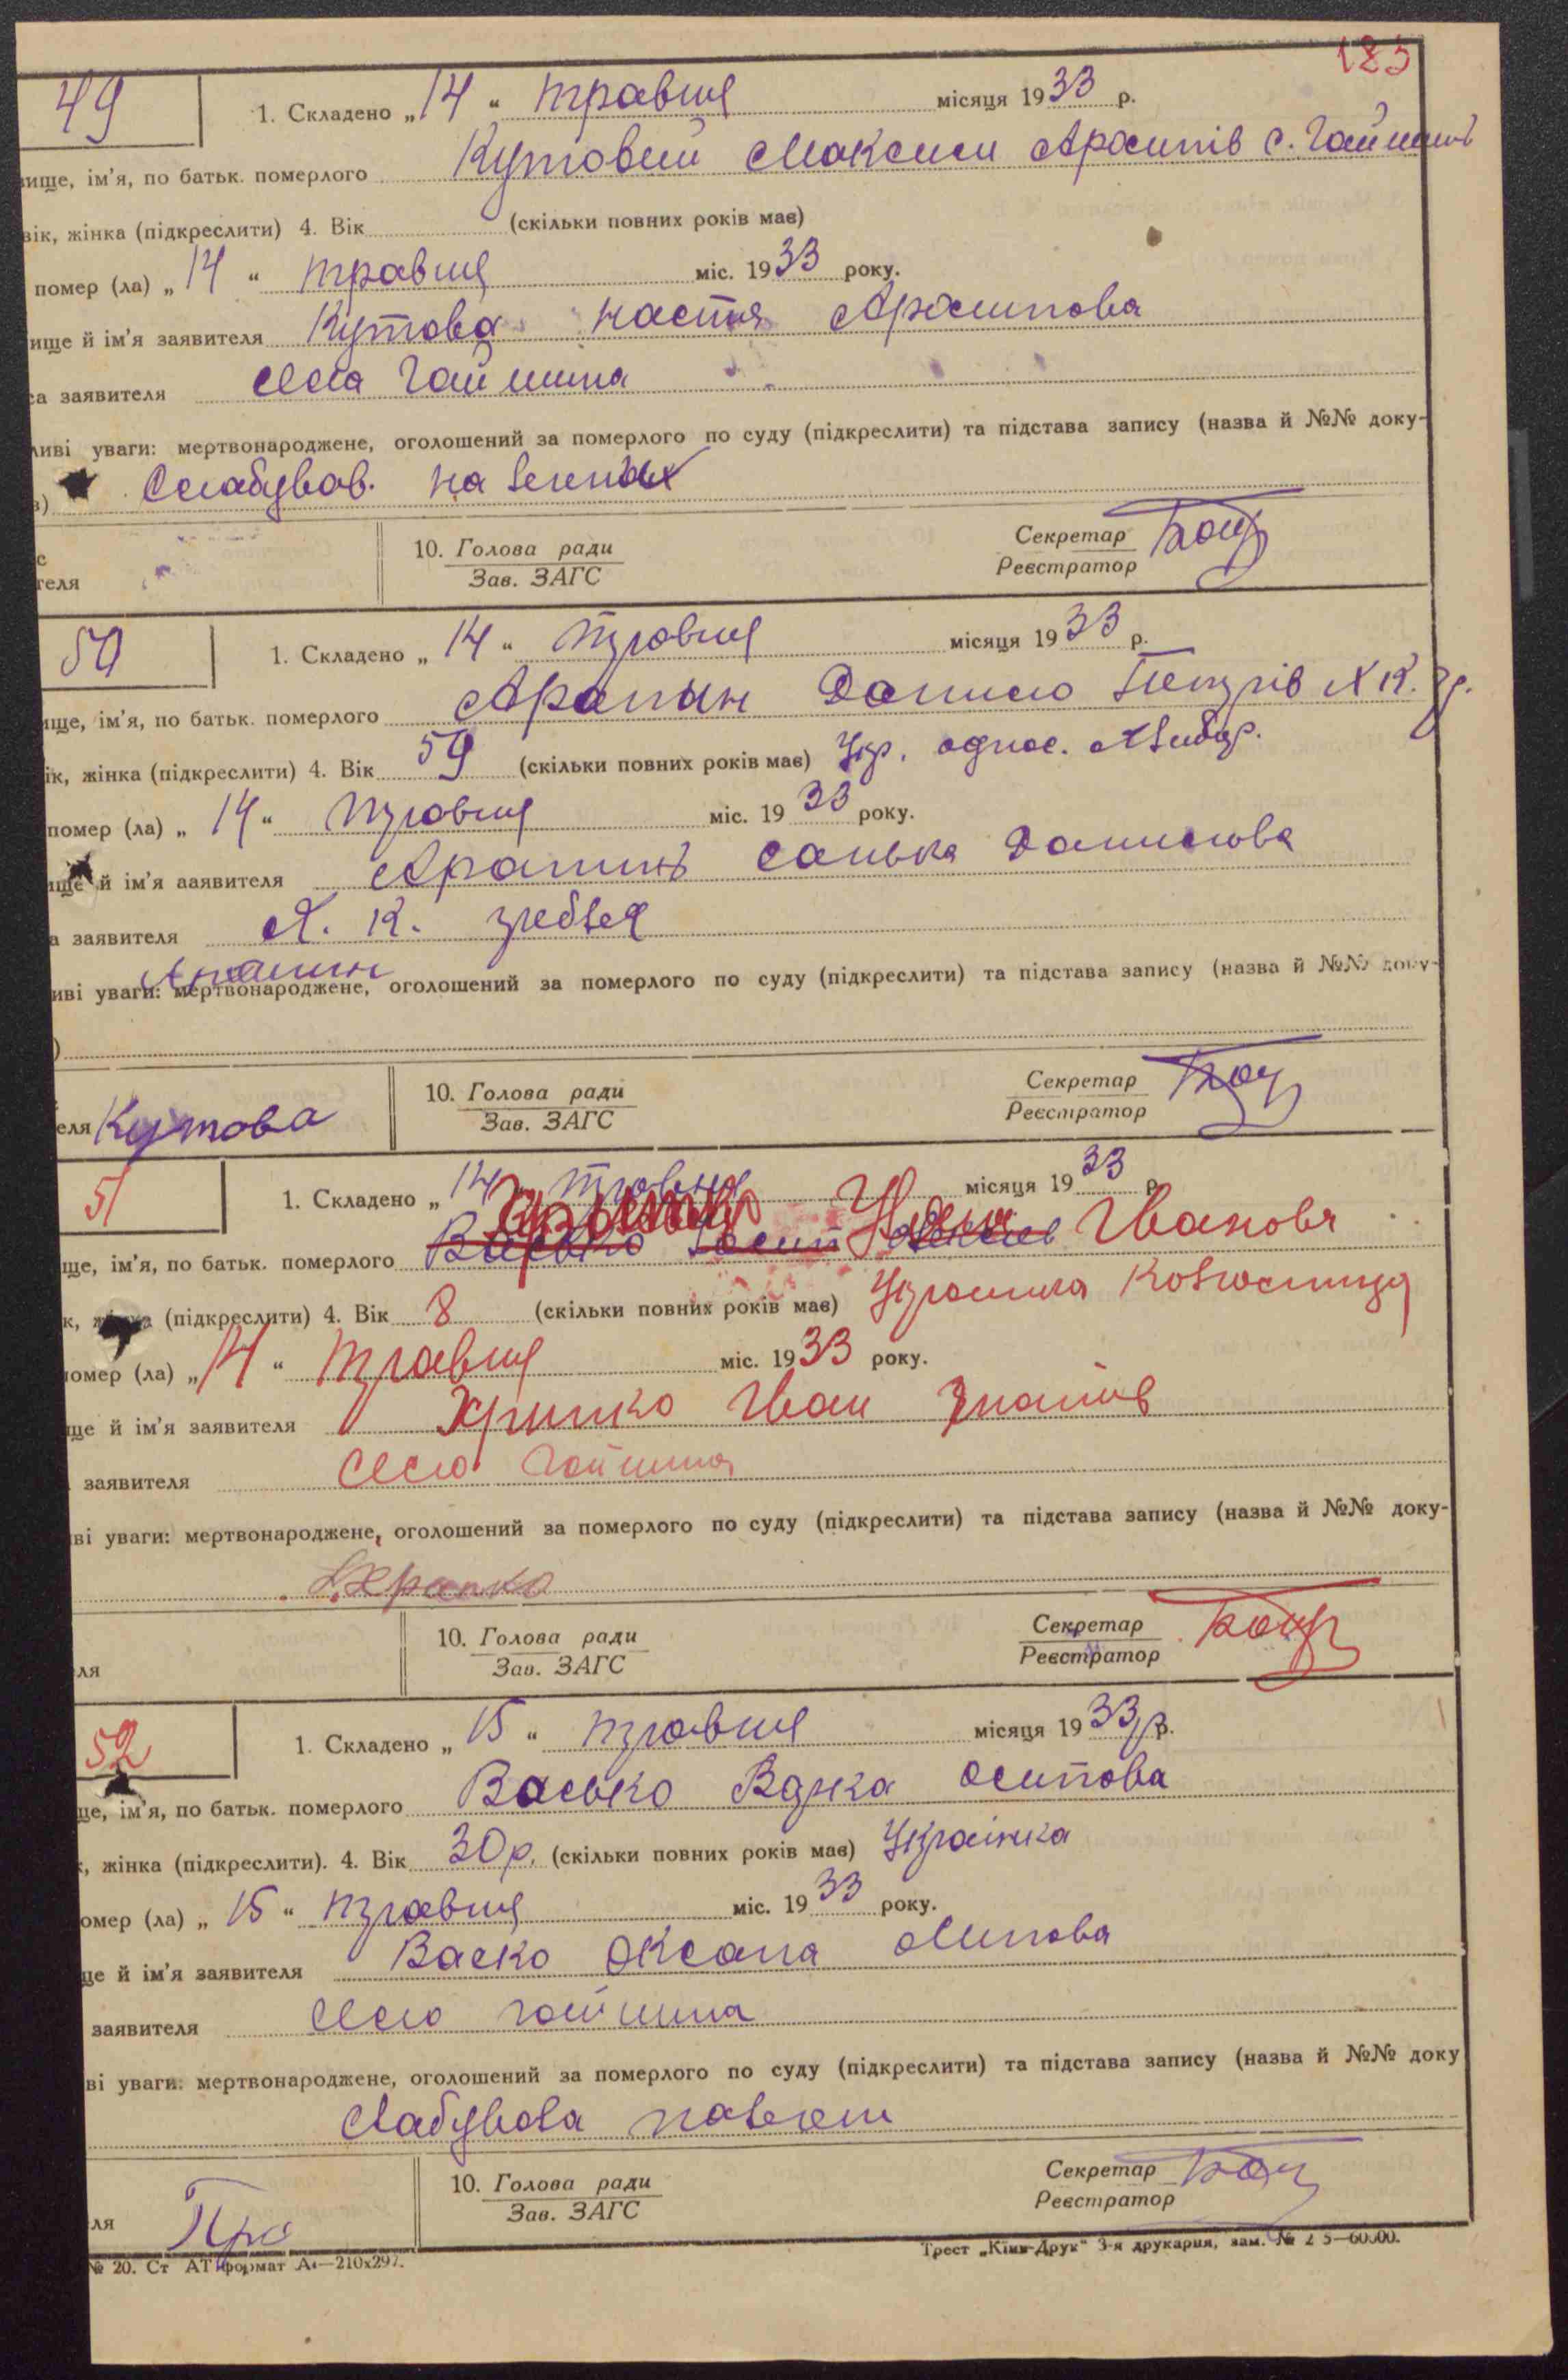 183
49 1. Складено „14“ травня місяця 1933 р.
ище, ім’я, по батьк. померлого Кутовий Максим
вік, жінка (підкреслити) 4. Вік (скільки повних років має)
помер (ла) „14“ травня міс. 1933 року.
ище й ім’я заявителя Кутова Настя
са заявителя село Гайшина
ливі уваги: мертвонароджене, оголошений за померлого по суду (підкреслити) та підстава запису (назва й №№ доку-
в)
с
теля
10. Голова ради
Зав. ЗАГС
Секретар
Реєстратор
50 1. Складено „14“ травня місяця 1933 р.
ище, ім’я, по батьк. померлого Данило Петрів
ік, жінка (підкреслити) 4. Вік 59 (скільки повних років має) Укр.
помер (ла) „14“ травня міс. 1933 року.
ище й ім’я заявителя Санька Данилова
а заявителя Х. К. гребля
иві уваги: мертвонароджене, оголошений за померлого по суду (підкреслити) та підстава запису (назва й №№ доку-
)
еля Кутова
10. Голова ради
Зав. ЗАГС
Секретар
Реєстратор
51 1. Складено „14“ травня місяця 1933 р.
ще, ім’я, по батьк. померлого Іванова
к, жінка (підкреслити) 4. Вік 8 (скільки повних років має) Українка
помер (ла) „14“ травня міс. 1933 року.
ще й ім’я заявителя Іван
заявителя село Гайшина
ві уваги: мертвонароджене, оголошений за померлого по суду (підкреслити) та підстава запису (назва й №№ доку-
ля
10. Голова ради
Зав. ЗАГС
Секретар
Реєстратор
52 1. Складено „15“ травня місяця 1933 р.
ще, ім’я, по батьк. померлого Васько Осипова
к, жінка (підкреслити). 4. Вік 30 р. (скільки повних років має) Українка
омер (ла) „15“ травня міс. 1933 року.
це й ім’я заявителя Васко Оксана
заявителя село гайшина
ві уваги: мертвонароджене, оголошений за померлого по суду (підкреслити) та підстава запису (назва й №№ доку
ля
10. Голова ради
Зав. ЗАГС
Секретар
Реєстратор
№ 20. Ст АТ формат А4—210х297.
Трест „Київ-Друк“ 3-я друкарня, зам. №